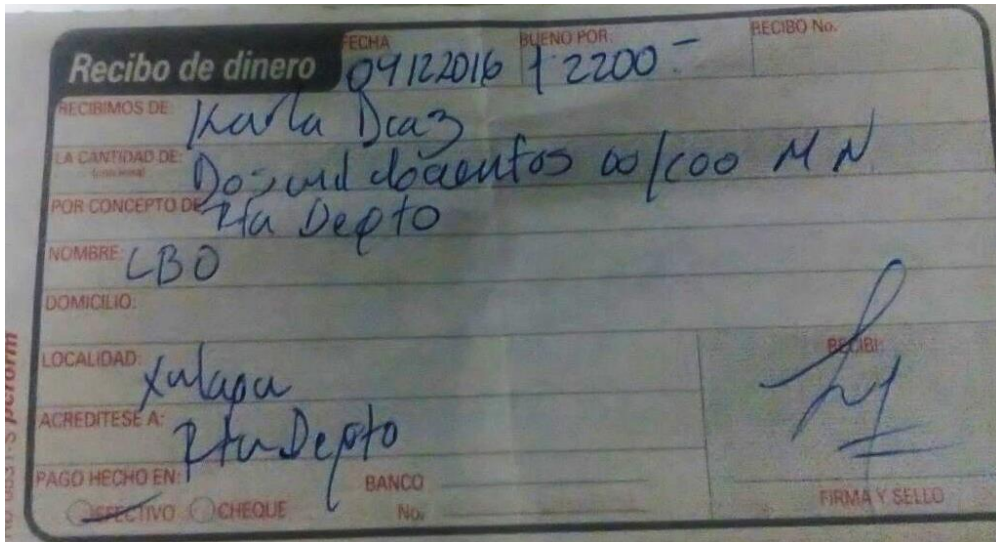 Recibo de dinero
FECHA 09122016
BUENO POR: $ 2200.-
RECIBO No.
RECIBIMOS DE: Karla Diaz
LA CANTIDAD DE: Dos mil docientos 00/100 M N
POR CONCEPTO DE Rta Depto
NOMBRE: LBO
DOMICILIO:
LOCALIDAD: Xalapa
ACREDITESE A: Rta Depto
PAGO HECHO EN: BANCO
EFECTIVO CHEQUE No.
RECIBI:
FIRMA Y SELLO